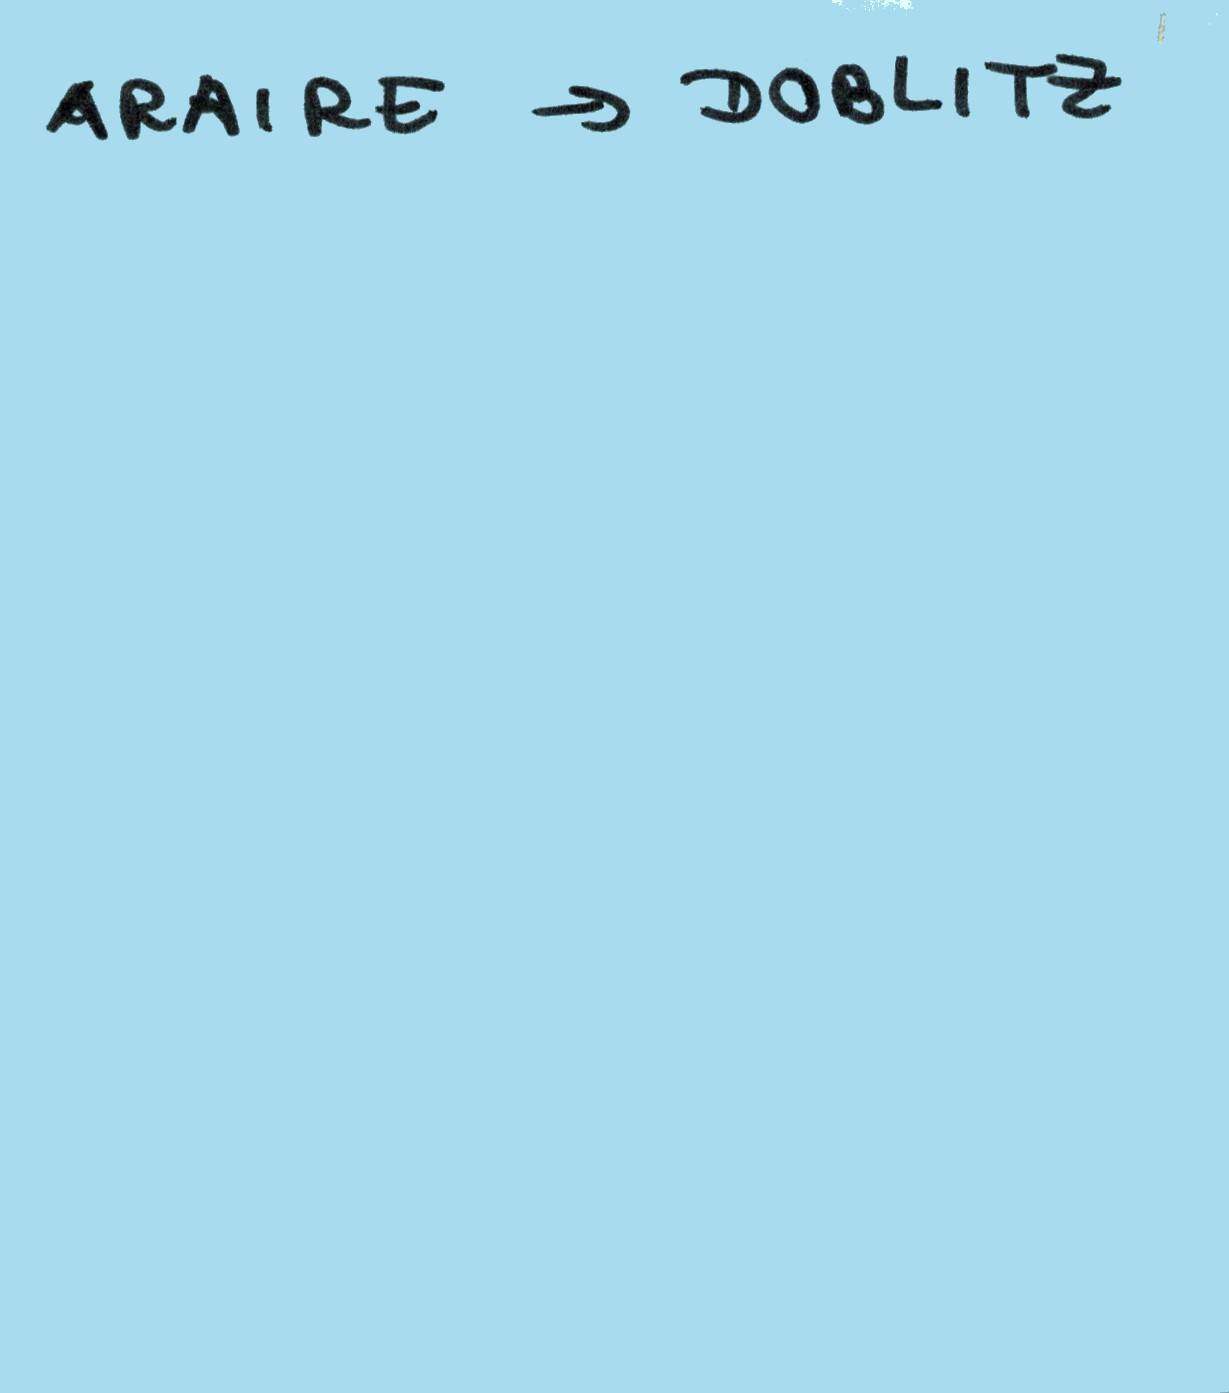 ARAIRE → DOBLITZ